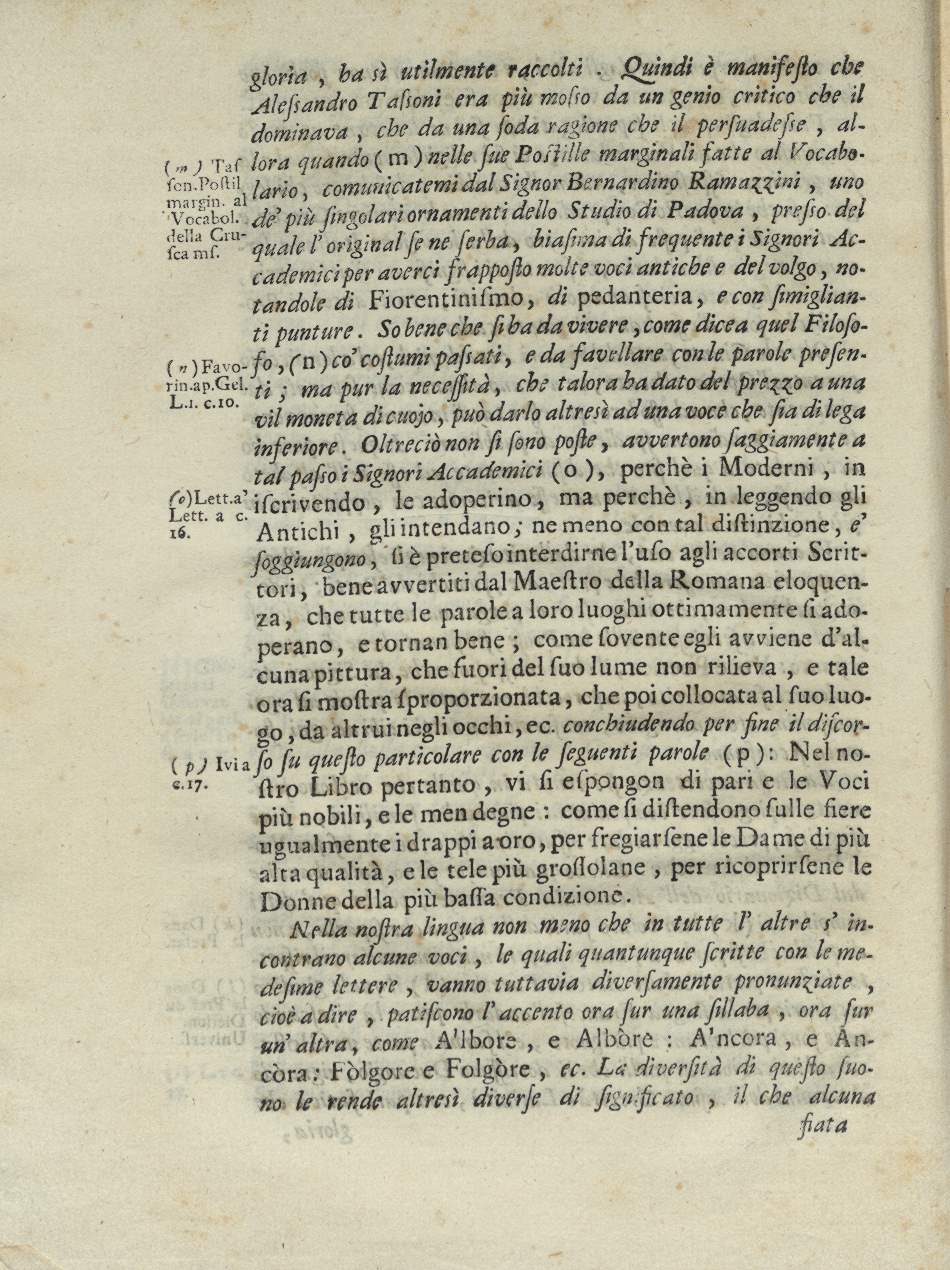 gloria , ha sì utilmente raccolti . Quindi è manifeſto che
Aleſſandro Taſſoni era più moſſo da un genio critico che il
dominava , che da una ſoda ragione che il perſuadeſſe , al-
lora quando ( m ) nelle ſue Poſtille marginali fatte al Vocabo-
lario, comunicatemi dal Signor Bernardino Ramazzini , uno
de' più ſingolari ornamenti dello Studio di Padova , preſſo del
quale l' original ſe ne ſerba, biaſima di frequente i Signori Ac-
cademici per averci frappoſto molte voci antiche e del volgo, no-
tandole di Fiorentiniſmo, di pedanteria, e con ſimiglian-
ti punture . So bene che ſi ha da vivere , come dicea quel Filoſo-
fo , ( n ) co' coſtumi paſſati, e da favellare con le parole preſen-
ti ; ma pur la neceſſità, che talora ha dato del prezzo a una
vil moneta di cuojo, può darlo altresì ad una voce che ſia di lega
inferiore . Oltreciò non ſi ſono poſte, avvertono ſaggiamente a
tal paſſo i Signori Accademici ( o ), perchè i Moderni , in
iſcrivendo , le adoperino, ma perchè , in leggendo gli
Antichi , gli intendano; ne meno con tal diſtinzione, e'
ſoggiungono, ſi è preteſo interdirne l'uſo agli accorti Scrit-
tori, bene avvertiti dal Maeſtro della Romana eloquen-
za, che tutte le parole a loro luoghi ottimamente ſi ado-
perano, e tornan bene ; come ſovente egli avviene d'al-
cuna pittura, che fuori del ſuo lume non rilieva , e tale
ora ſi moſtra ſproporzionata, che poi collocata al ſuo luo-
go, da altrui negli occhi, ec. conchiudendo per fine il diſcor-
ſo ſu queſto particolare con le ſeguenti parole ( p ): Nel no-
ſtro Libro pertanto , vi ſi eſpongon di pari e le Voci
più nobili, e le men degne : come ſi diſtendono ſulle fiere
ugualmente i drappi a oro, per fregiarſene le Dame di più
alta qualità, e le tele più groſſolane , per ricoprirſene le
Donne della più baſſa condizione.
Nella noſtra lingua non meno che in tutte l' altre s' in-
contrano alcune voci , le quali quantunque ſcritte con le me-
deſime lettere , vanno tuttavia diverſamente pronunziate ,
cioè a dire , patiſcono l'accento ora ſur una ſillaba , ora ſur
un' altra, come A'lbore , e Albòre : A'ncora , e An-
còra: Fòlgore e Folgòre , ec. La diverſità di queſto ſuo-
no le rende altresì diverſe di ſignificato , il che alcuna
fiata
( m ) Taſ
ſon. Poſtil
margin. al
Vocabol.
della Cru-
ſca mſ.
( n ) Favo-
rin.ap.Gel.
L.1. c.10.
(o) Lett.a'
Lett. a c.
16.
( p ) Ivi a
c.17.